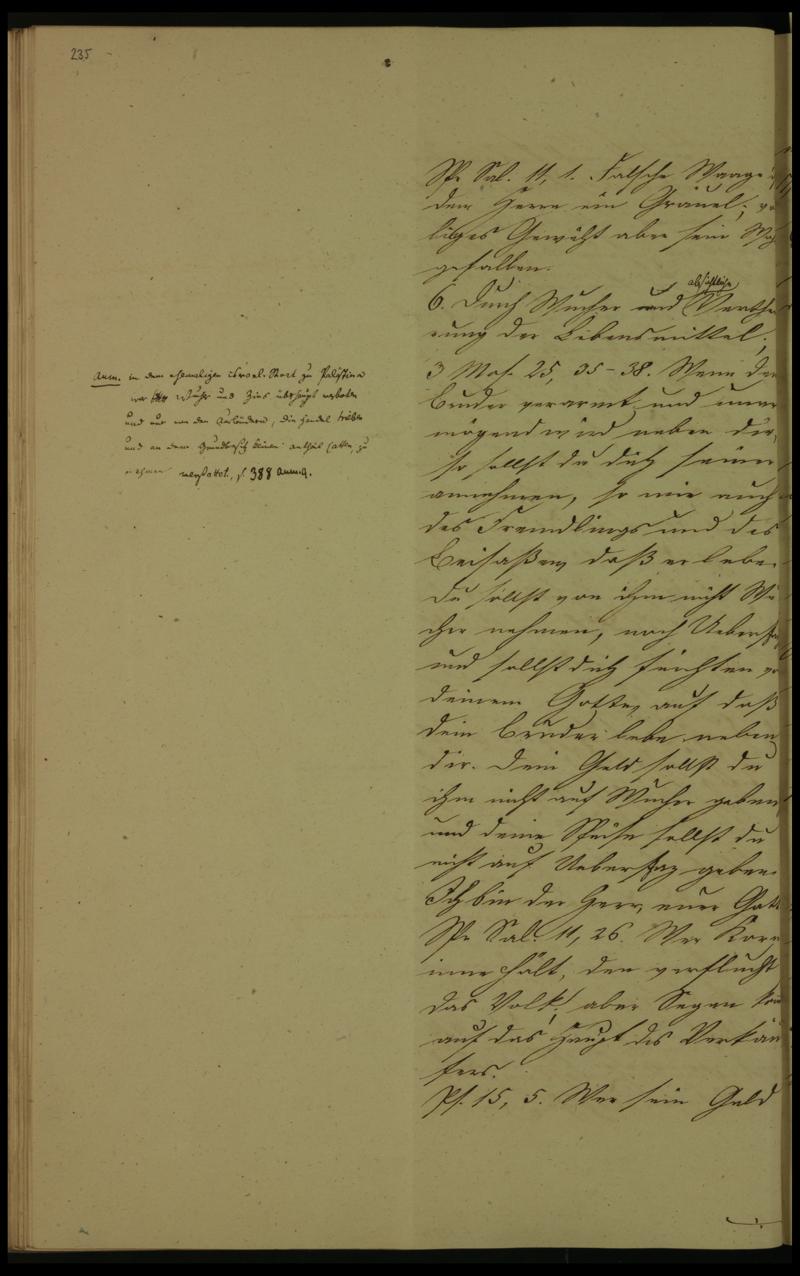 235
Spr. Sal. 11, 1. Falsche Waage
dem Herrn ein Gräuel;
liges Gewicht aber sein
gefallen.
absichtliche
6. Durch Wucher und Verthe
rung der Lebensmittel.
3 Mos. 25, 35-38. Wenn dein
Bruder verarmt und unver
mögend wird neben dir,
so sollst du dich seiner
annehmen, so wie auch
des Fremdlings und des
Beisaßen, daß er lebe.
Du sollst von ihm nicht Wu
cher nehmen, noch Uebersatz
und sollst dich fürchten vor
deinem Gotte, auf daß
dein Bruder lebe neben
dir. Dein Geld sollst du
ihm nicht auf Wucher geben,
und deine Speise sollst du
nicht auf Uebersatz geben.
Ich bin der Herr, euer Gott
Spr. Sal. 11, 26. Wer Korn
inne hält, den verflucht
das Volk; aber Segen
auf das Haupt des Verkäu
fers.
Ps. 15, 5. Wer sein Geld
Anm. in dem ehemaligen israel. Staat zu Palästina
war Wucher und Zins überhaupt verboten
und nur von den Ausländern, die Handel trieben
und an dem Grundbesitz keinen Antheil hatten, zu
nehmen gestattet, s. 388 Anm.